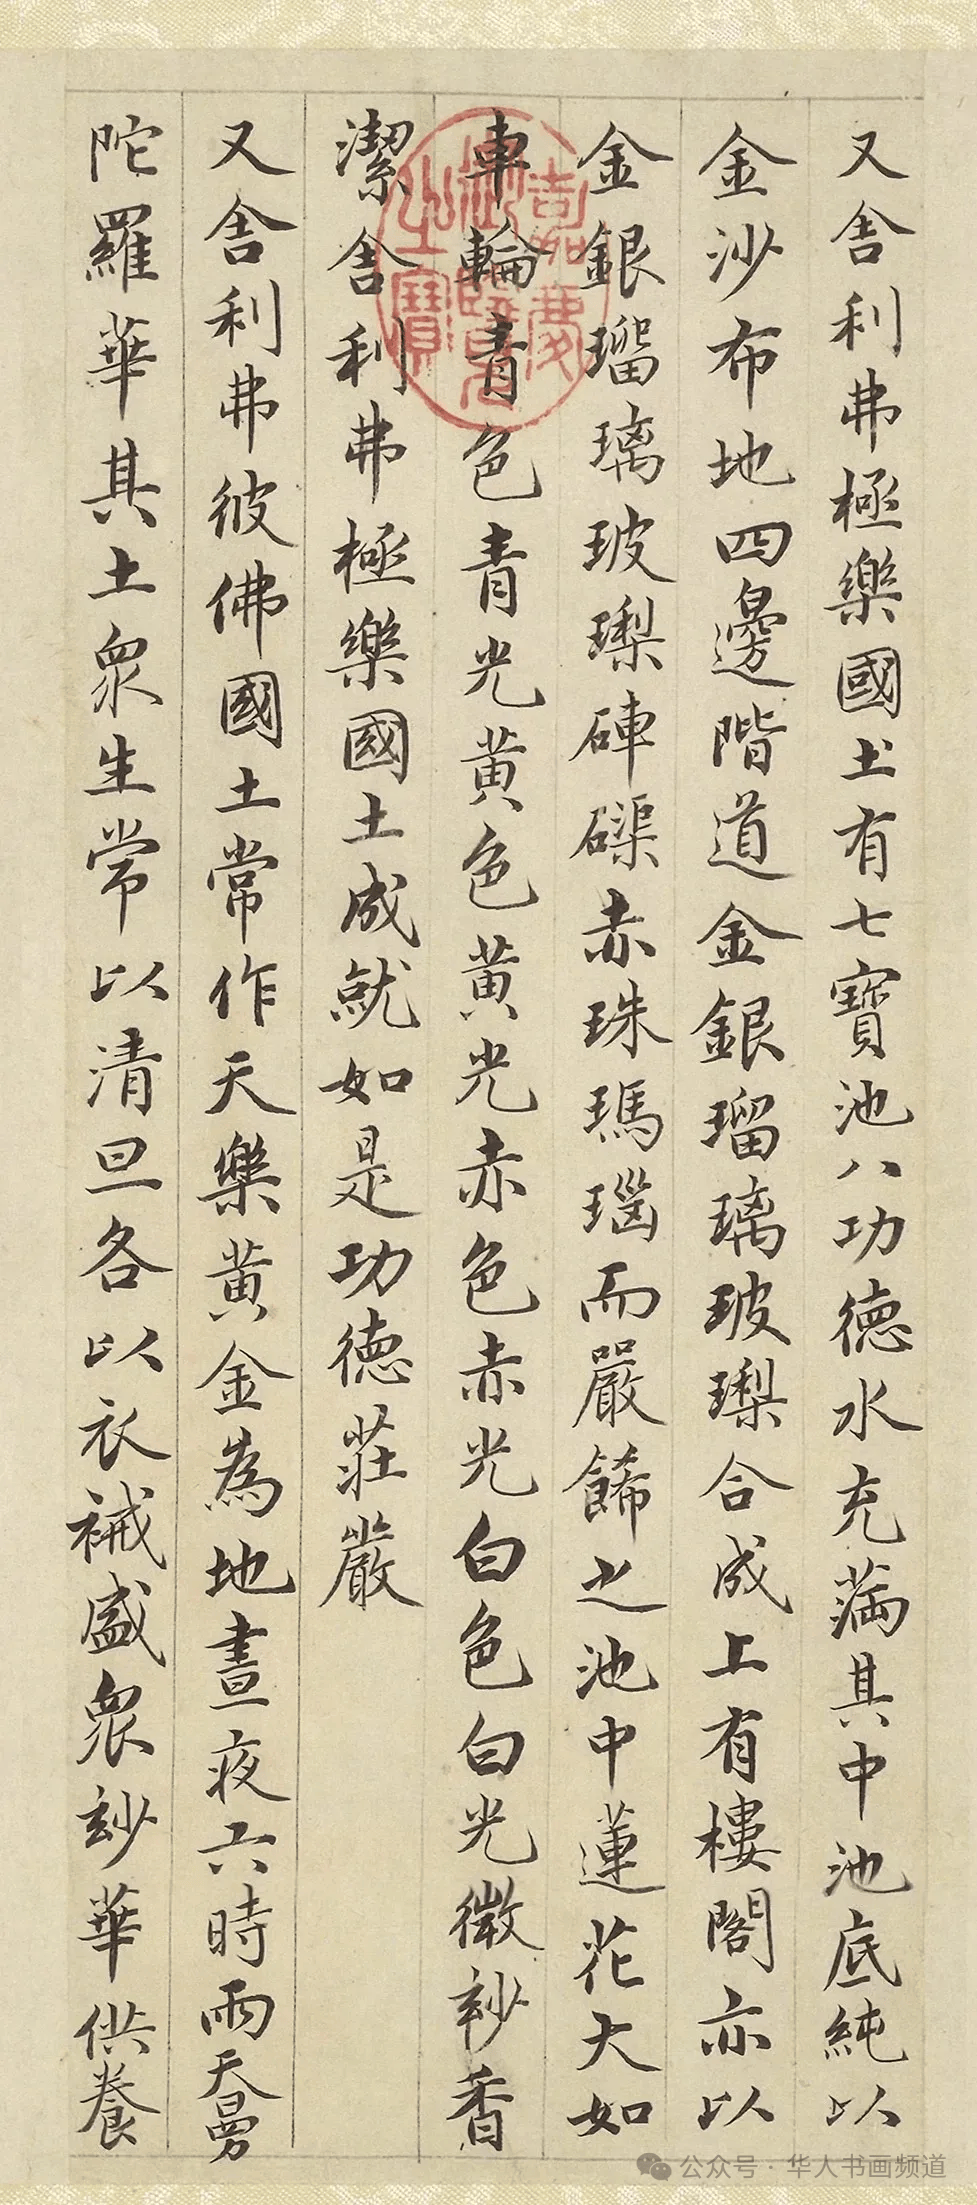 又舍利弗極樂國土有七寶池八功德水充滿其中池底純以
金沙布地四邊階道金銀瑠璃玻瓈合成上有樓閣亦以
金銀瑠璃玻瓈硨磲赤珠瑪瑙而嚴餙之池中蓮花大如
車輪青色青光黃色黃光赤色赤光白色白光微玅香
潔舍利弗極樂國土成就如是功德莊嚴
又舍利弗彼佛國土常作天樂黃金為地晝夜六時雨天曼
陀羅華其土眾生常以清旦各以衣祴盛眾玅華供養
嘉慶御覽之寶
公众号·华人书画频道